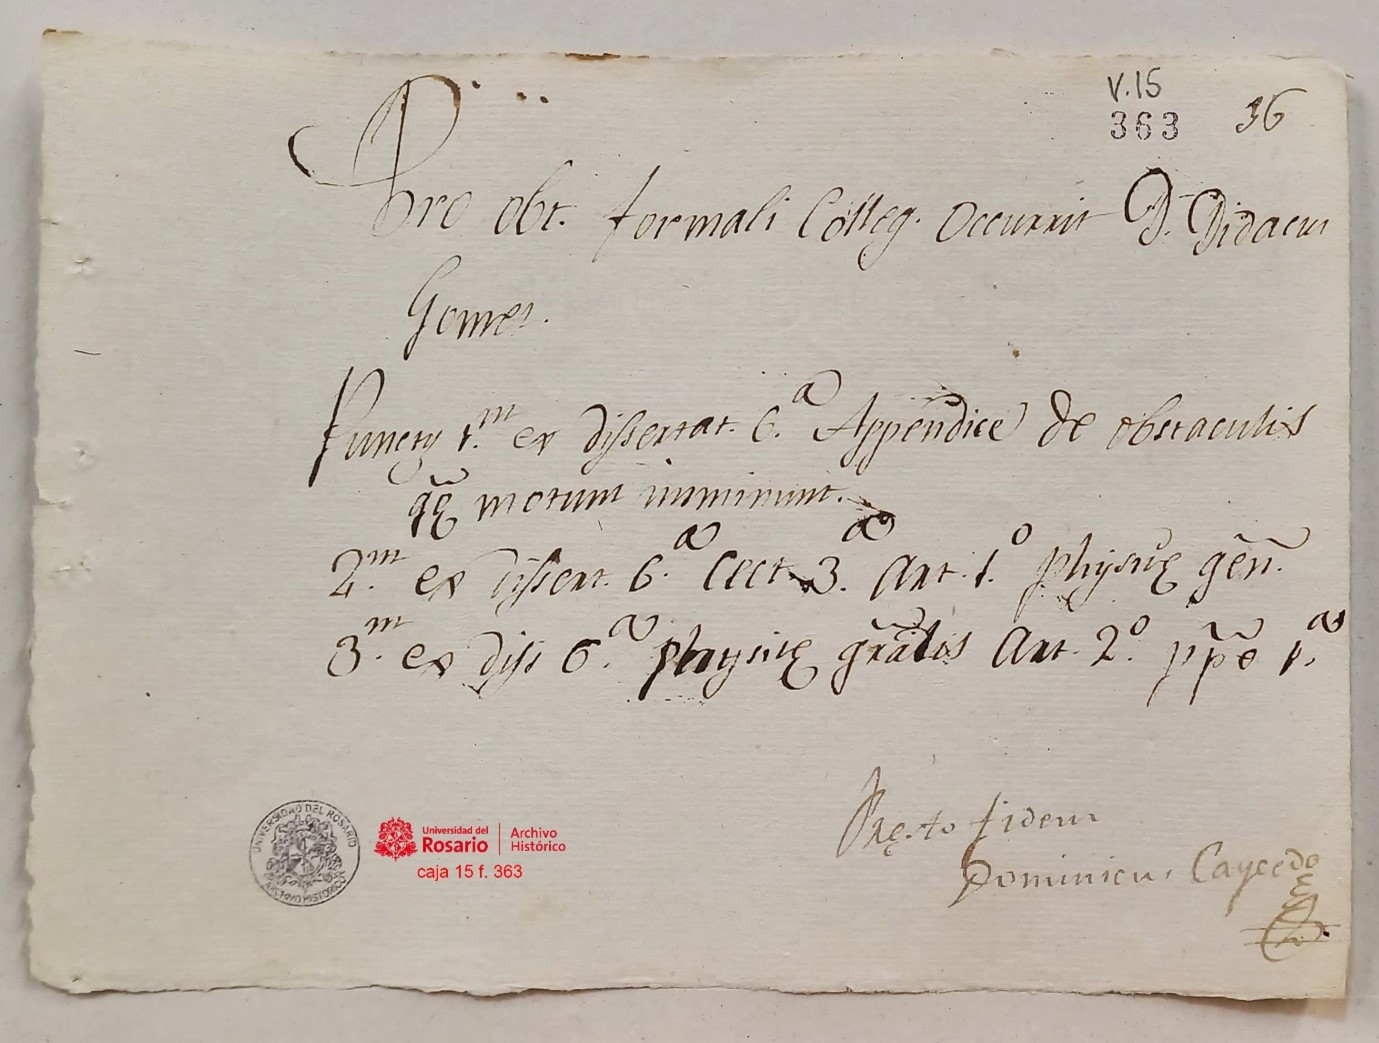 V.15
363 36
Pro obt. formali Colleg. occurrit D. Didacus
Gomez.
Punctũ 1.m ex dissertat. 6.a Appendice de obstaculis
quę motum imminunt.
2.m ex dissert. 6.a Sect. 3.a Art. 1.o physicę gẽn.
3.m ex diss 6.a physicę grãlis Art. 2.o 1.as
Pręsto fidem
Dominicus Caycedo
UNIVERSIDAD DEL ROSARIO
ARCHIVO HISTORICO
Universidad del
Rosario
Archivo
Histórico
caja 15 f. 363